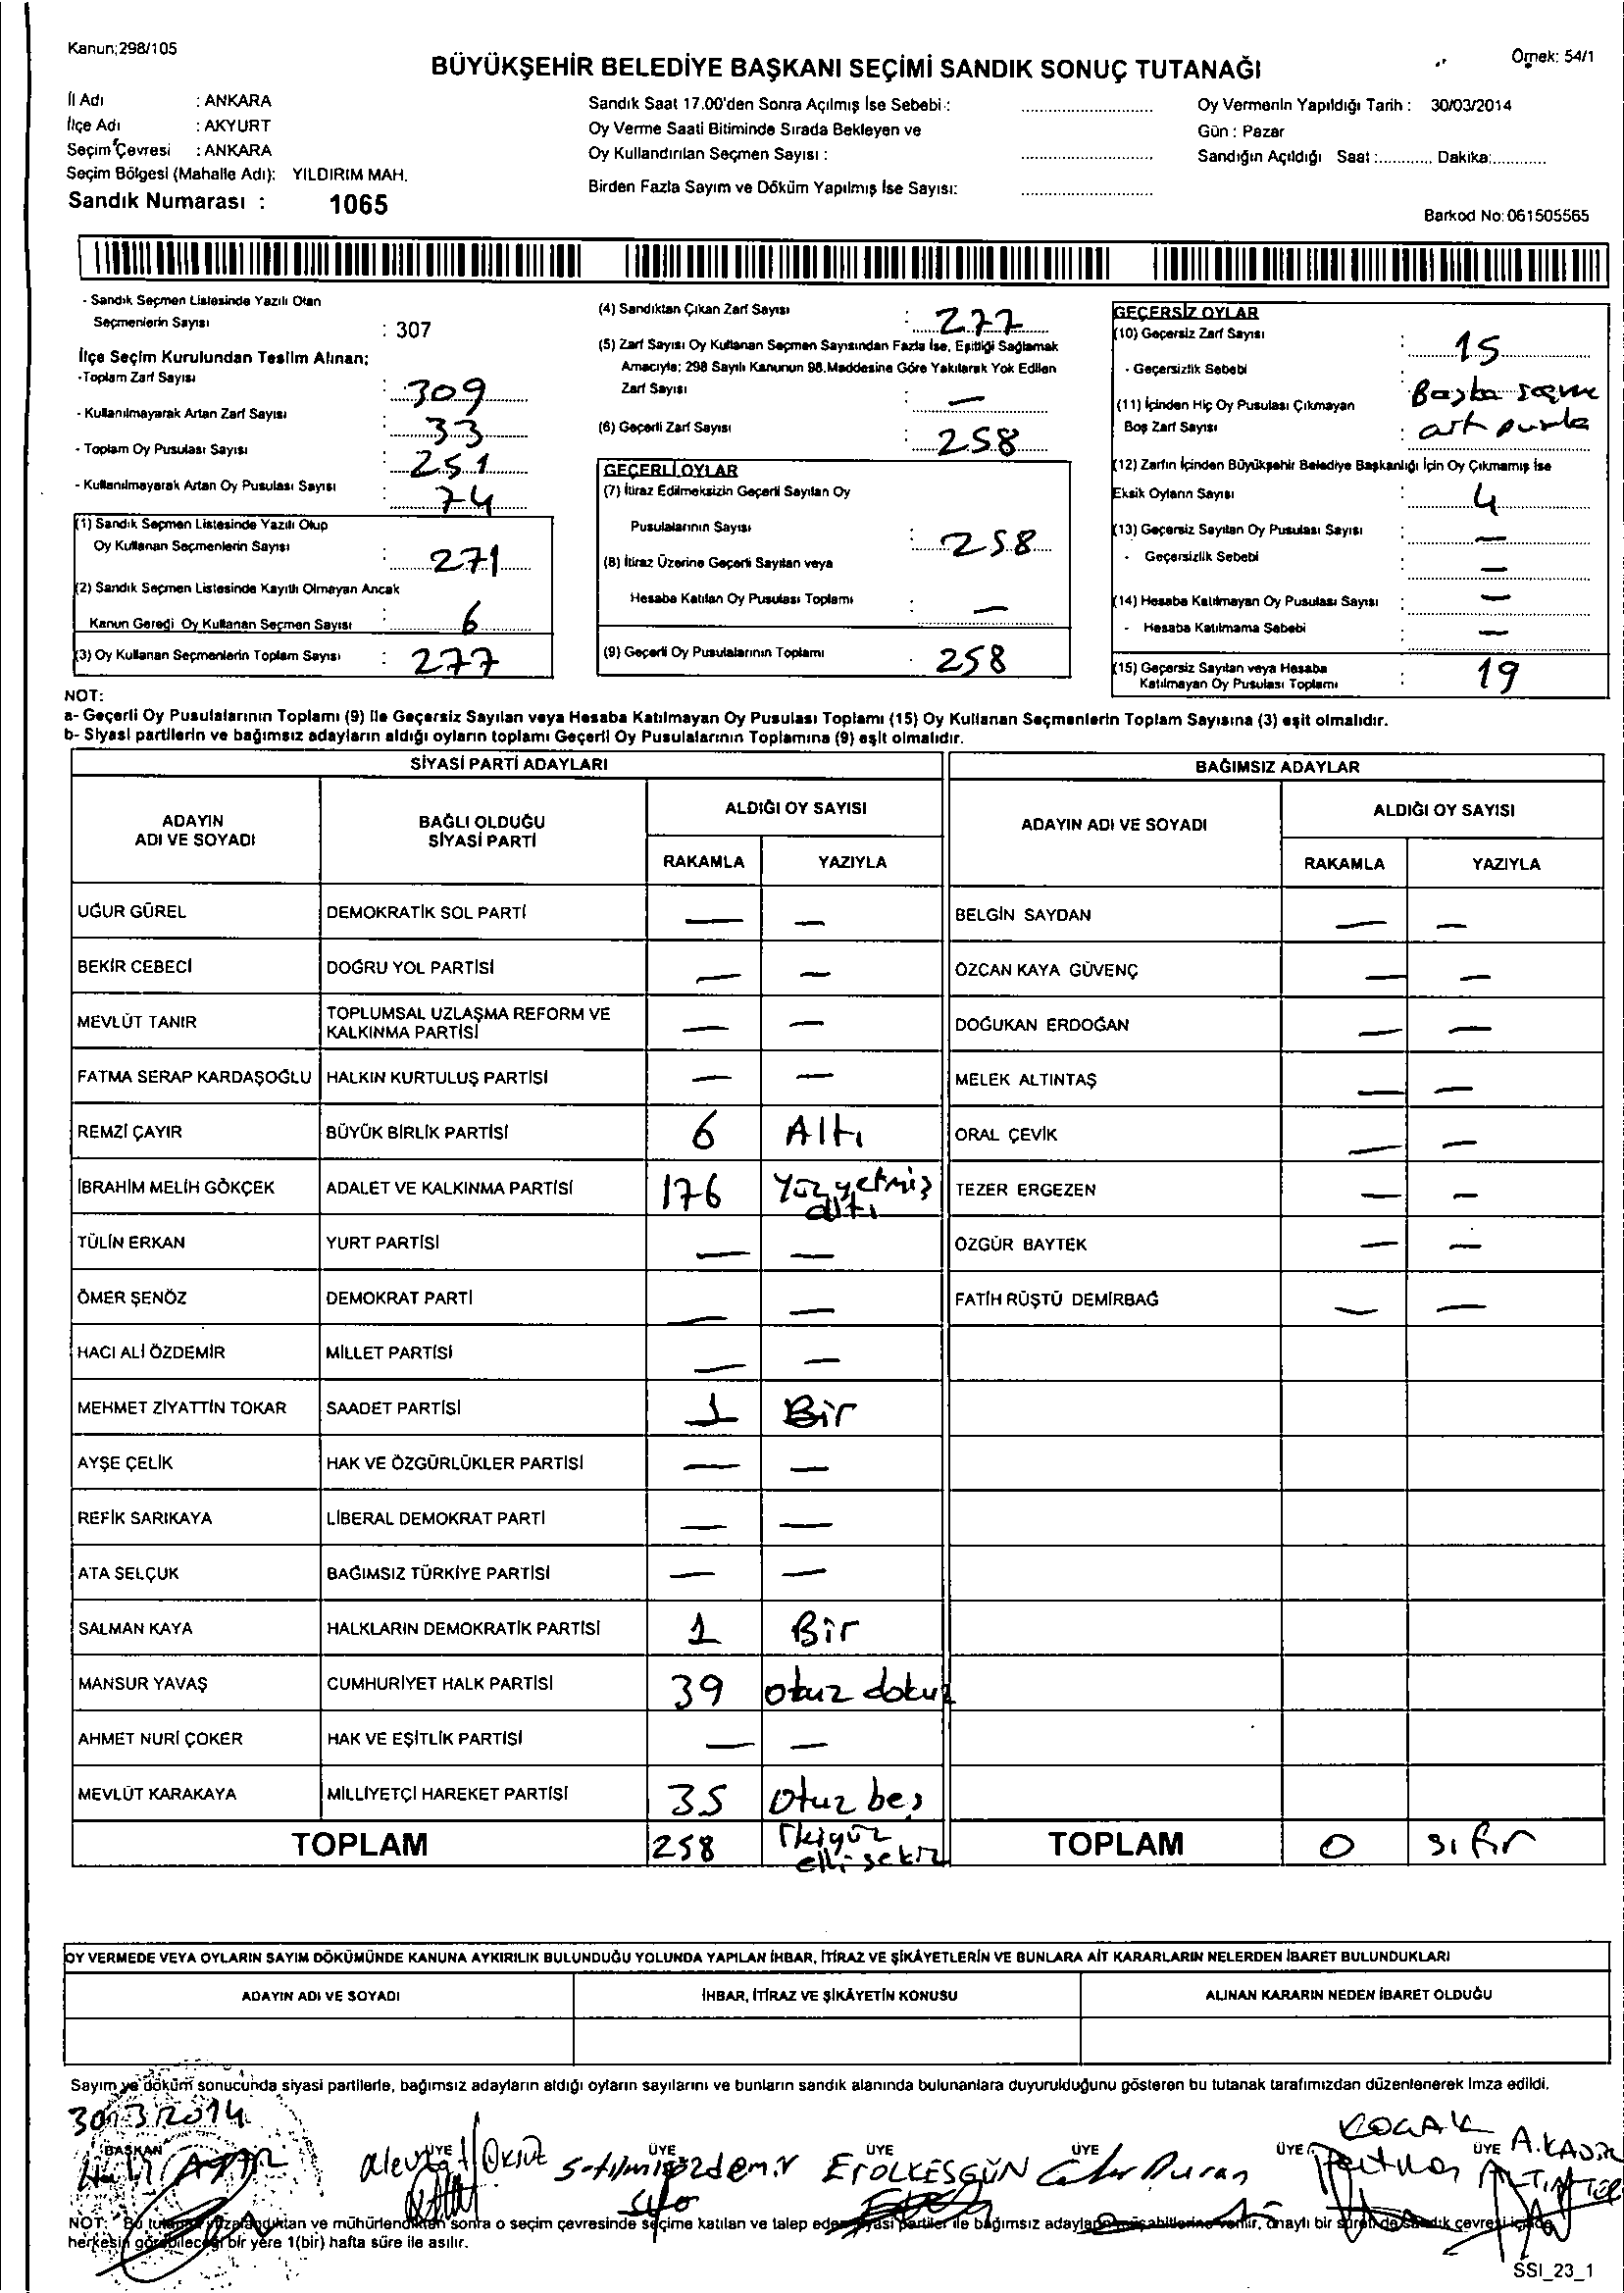 Kanun;298/105
Örnek: 54/1
BÜYÜKŞEHİR BELEDİYE BAŞKANI SEÇİMİ SANDIK SONUÇ TUTANAĞI
İl Adı : ANKARA
İlçe Adı : AKYURT
Seçim Çevresi : ANKARA
Seçim Bölgesi (Mahalle Adı): YILDIRIM MAH.
Sandık Numarası : 1065
Sandık Saat 17.00'den Sonra Açılmış İse Sebebi :
Oy Verme Saati Bitiminde Sırada Bekleyen ve
Oy Kullandırılan Seçmen Sayısı :
Birden Fazla Sayım ve Döküm Yapılmış İse Sayısı:
Oy Vermenin Yapıldığı Tarih : 30/03/2014
Gün : Pazar
Sandığın Açıldığı Saat :............ Dakika:............
Barkod No: 061505565
- Sandık Seçmen Listesinde Yazılı Olan
Seçmenlerin Sayısı : 307
İlçe Seçim Kurulundan Teslim Alınan;
-Toplam Zarf Sayısı : 309
- Kullanılmayarak Artan Zarf Sayısı : 33
- Toplam Oy Pusulası Sayısı : 251
- Kullanılmayarak Artan Oy Pusulası Sayısı : 74
(1) Sandık Seçmen Listesinde Yazılı Olup
Oy Kullanan Seçmenlerin Sayısı : 271
(2) Sandık Seçmen Listesinde Kayıtlı Olmayan Ancak
Kanun Gereği Oy Kullanan Seçmen Sayısı : 6
(3) Oy Kullanan Seçmenlerin Toplam Sayısı : 277
(4) Sandıktan Çıkan Zarf Sayısı : 277
(5) Zarf Sayısı Oy Kullanan Seçmen Sayısından Fazla İse, Eşitliği Sağlamak
Amacıyla; 298 Sayılı Kanunun 98.Maddesine Göre Yakılarak Yok Edilen
Zarf Sayısı : —
(6) Geçerli Zarf Sayısı : 258
GEÇERLİ OYLAR
(7) İtiraz Edilmeksizin Geçerli Sayılan Oy
Pusulalarının Sayısı : 258
(8) İtiraz Üzerine Geçerli Sayılan veya
Hesaba Katılan Oy Pusulası Toplamı : —
(9) Geçerli Oy Pusulalarının Toplamı : 258
GEÇERSİZ OYLAR
(10) Geçersiz Zarf Sayısı : 15
- Geçersizlik Sebebi : Başka seçme
(11) İçinden Hiç Oy Pusulası Çıkmayan
Boş Zarf Sayısı :
(12) Zarfın İçinden Büyükşehir Belediye Başkanlığı İçin Oy Çıkmamış İse
Eksik Oyların Sayısı : 4
(13) Geçersiz Sayılan Oy Pusulası Sayısı : —
- Geçersizlik Sebebi : —
(14) Hesaba Katılmayan Oy Pusulası Sayısı : —
- Hesaba Katılmama Sebebi : —
(15) Geçersiz Sayılan veya Hesaba
Katılmayan Oy Pusulası Toplamı : 19
NOT:
a- Geçerli Oy Pusulalarının Toplamı (9) İle Geçersiz Sayılan veya Hesaba Katılmayan Oy Pusulası Toplamı (15) Oy Kullanan Seçmenlerin Toplam Sayısına (3) eşit olmalıdır.
b- Siyasi partilerin ve bağımsız adayların aldığı oyların toplamı Geçerli Oy Pusulalarının Toplamına (9) eşit olmalıdır.
SİYASİ PARTİ ADAYLARI
ADAYIN ADI VE SOYADI
BAĞLI OLDUĞU SİYASİ PARTİ
ALDIĞI OY SAYISI
RAKAMLA YAZIYLA
UĞUR GÜREL DEMOKRATİK SOL PARTİ — —
BEKİR CEBECİ DOĞRU YOL PARTİSİ — —
MEVLÜT TANIR TOPLUMSAL UZLAŞMA REFORM VE KALKINMA PARTİSİ — —
FATMA SERAP KARDAŞOĞLU HALKIN KURTULUŞ PARTİSİ — —
REMZİ ÇAYIR BÜYÜK BİRLİK PARTİSİ 6 Altı
İBRAHİM MELİH GÖKÇEK ADALET VE KALKINMA PARTİSİ 176 Yüz yetmiş altı
TÜLİN ERKAN YURT PARTİSİ — —
ÖMER ŞENÖZ DEMOKRAT PARTİ — —
HACI ALİ ÖZDEMİR MİLLET PARTİSİ — —
MEHMET ZİYATTİN TOKAR SAADET PARTİSİ 1 Bir
AYŞE ÇELİK HAK VE ÖZGÜRLÜKLER PARTİSİ — —
REFİK SARIKAYA LİBERAL DEMOKRAT PARTİ — —
ATA SELÇUK BAĞIMSIZ TÜRKİYE PARTİSİ — —
SALMAN KAYA HALKLARIN DEMOKRATİK PARTİSİ 1 Bir
MANSUR YAVAŞ CUMHURİYET HALK PARTİSİ 39 otuz dokuz
AHMET NURİ ÇOKER HAK VE EŞİTLİK PARTİSİ — —
MEVLÜT KARAKAYA MİLLİYETÇİ HAREKET PARTİSİ 35 Otuz beş
TOPLAM 258 İkiyüz elli sekiz
BAĞIMSIZ ADAYLAR
ADAYIN ADI VE SOYADI
ALDIĞI OY SAYISI
RAKAMLA YAZIYLA
BELGİN SAYDAN — —
ÖZCAN KAYA GÜVENÇ — —
DOĞUKAN ERDOĞAN — —
MELEK ALTINTAŞ — —
ORAL ÇEVİK — —
TEZER ERGEZEN — —
ÖZGÜR BAYTEK — —
FATİH RÜŞTÜ DEMİRBAĞ — —
TOPLAM 0 sıfır
OY VERMEDE VEYA OYLARIN SAYIM DÖKÜMÜNDE KANUNA AYKIRILIK BULUNDUĞU YOLUNDA YAPILAN İHBAR, İTİRAZ VE ŞİKÂYETLERİN VE BUNLARA AİT KARARLARIN NELERDEN İBARET BULUNDUKLARI
ADAYIN ADI VE SOYADI
İHBAR, İTİRAZ VE ŞİKÂYETİN KONUSU
ALINAN KARARIN NEDEN İBARET OLDUĞU
Sayım ve döküm sonucunda siyasi partilerle, bağımsız adayların aldığı oyların sayılarını ve bunların sandık alanında bulunanlara duyurulduğunu gösteren bu tutanak tarafımızdan düzenlenerek imza edildi.
30/03/2014
BAŞKAN ÜYE ÜYE ÜYE ÜYE ÜYE ÜYE
EROL KESGÜN
KOÇAK
A.KADİR
NOT: Bu tutanak ve mühürlendikten sonra o seçim çevresinde seçime katılan ve talep eden siyasi partiler ile bağımsız adayların müşahitlerine verilir, onaylı bir sureti de sandık çevresi içinde
herkesin görebileceği bir yere 1(bir) hafta süre ile asılır.
SSI_23_1